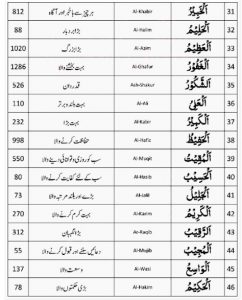 812 ہر چیز سے باخبر اور آگاہ Al-Khabir اَلْخَبِيْرُ 31
88 بڑا بردبار Al-Halim اَلْحَلِيْمُ 32
1020 بڑا بزرگ Al-Azim اَلْعَظِيْمُ 33
1286 بہت بخشنے والا Al-Ghafur اَلْغَفُوْرُ 34
526 قدردان Ash-Shakur اَلشَّكُوْرُ 35
110 بہت بلند و برتر Al-Ali اَلْعَلِيُّ 36
232 بہت بڑا Al-Kabir اَلْكَبِيْرُ 37
998 حفاظت کرنے والا Al-Hafiz اَلْحَفِيْظُ 38
550 سب کو روزی و توانائی دینے والا Al-Muqit اَلْمُقِيْتُ 39
80 سب کے لئے کفایت کرنے والا Al-Hasib اَلْحَسِيْبُ 40
73 بڑے اور بلند مرتبہ والا Al-Jalil اَلْجَلِيْلُ 41
270 بہت کرم کرنے والا Al-Karim اَلْكَرِيْمُ 42
312 بڑا نگہبان Al-Raqib اَلرَّقِيْبُ 43
55 دعائیں سننے اور قبول کرنے والا Al-Mujib اَلْمُجِيْبُ 44
137 وسعت والا Al-Wasi اَلْوَاسِعُ 45
78 بڑی حکمتوں والا Al-Hakim اَلْحَكِيْمُ 46